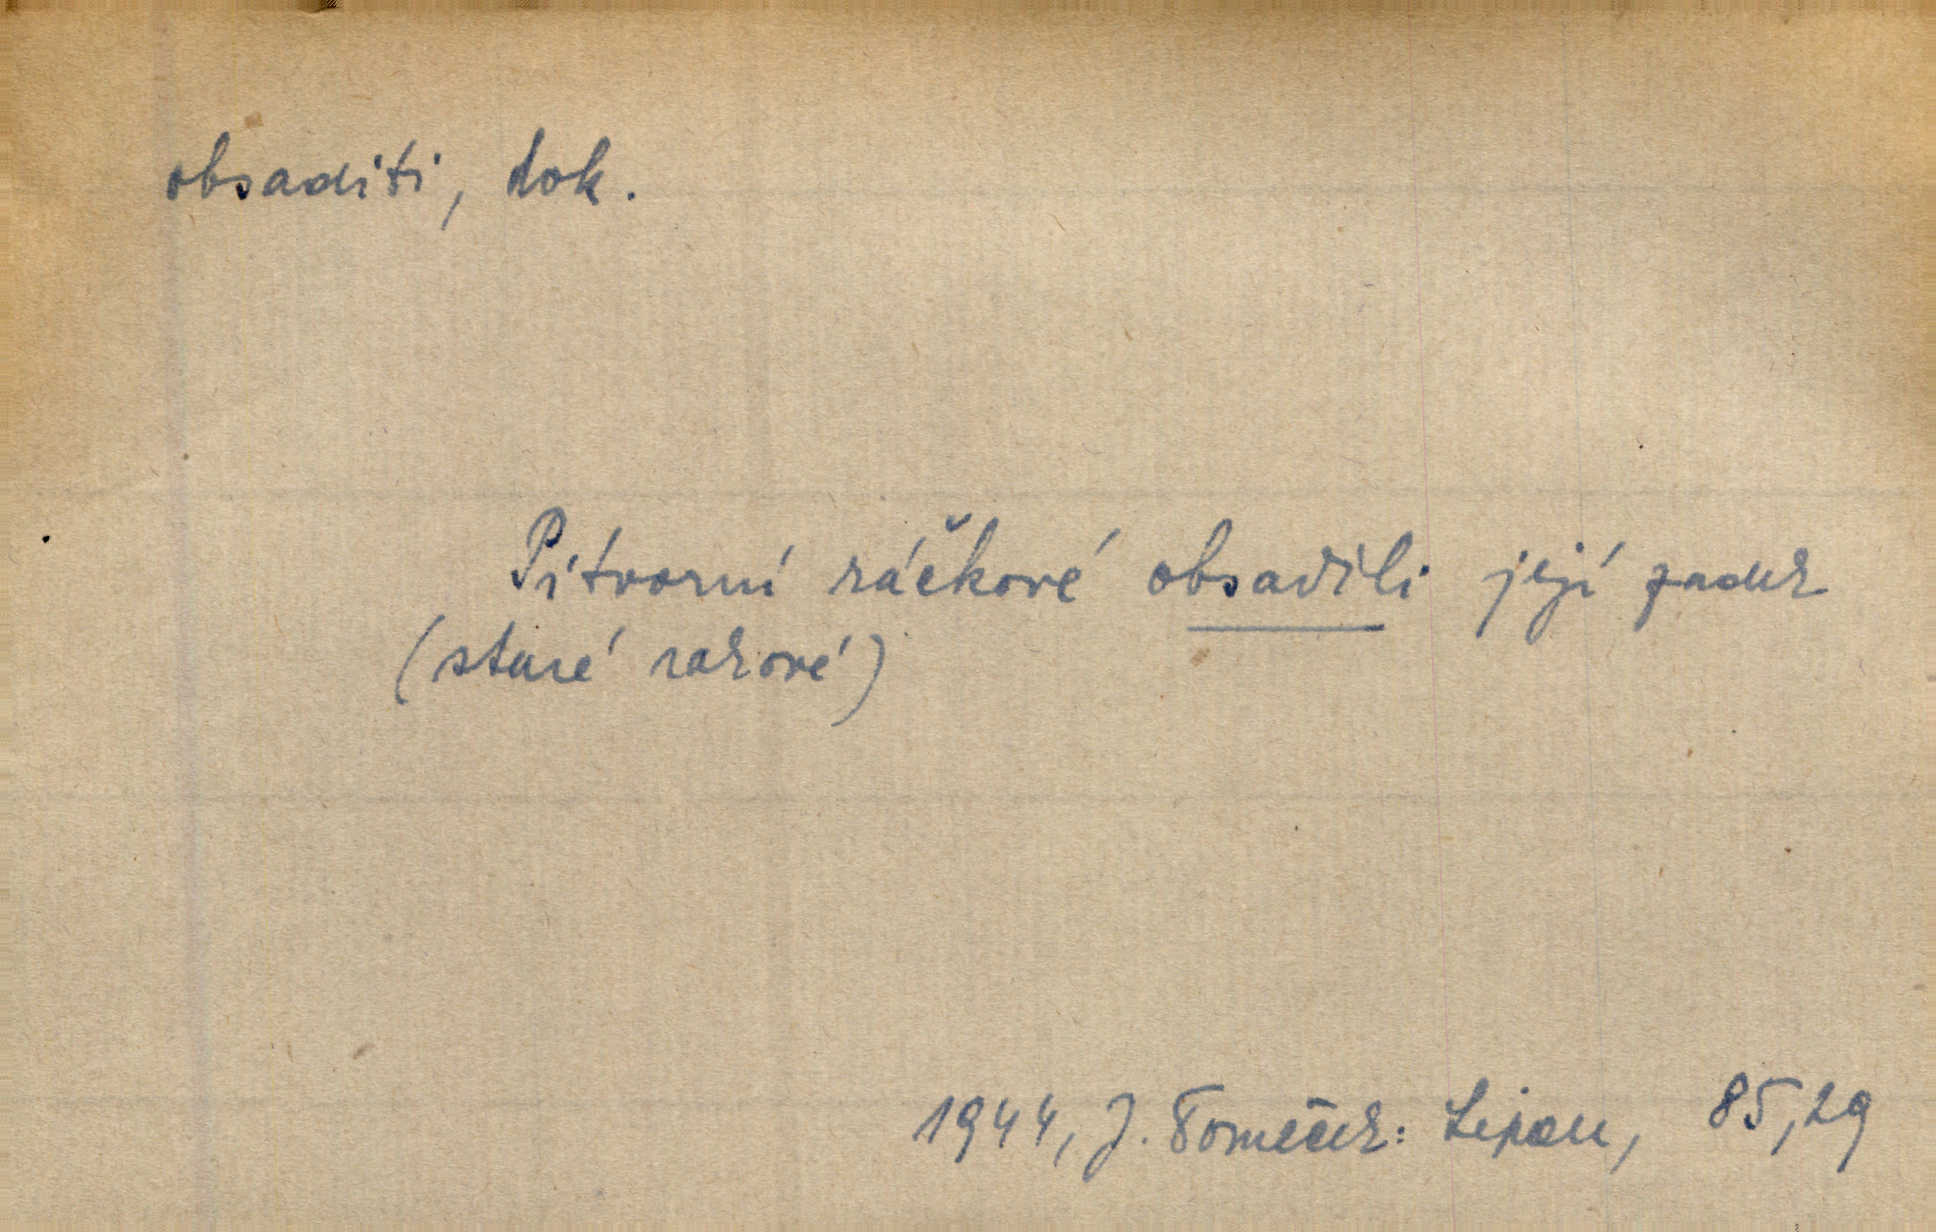 obsaditi, dok.
Pitvorní ráčkové obsadili její zadek
(staré rakové)
1944, J. Tomeček: Lipan, 85,29